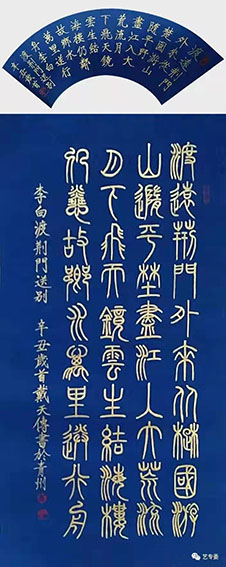 渡遠荊門
外來從
楚國游山
隨平野盡
江入大
荒流月
下飛天鏡
雲生結
海樓仍憐
故鄉水
萬里送行
舟
渡遠荊門外來從楚國游
山隨平野盡江入大荒流
月下飛天鏡雲生結海樓
仍憐故鄉水萬里送行舟
李白渡荊門送別 辛丑歲首戴天傳書於貴州
艺专委